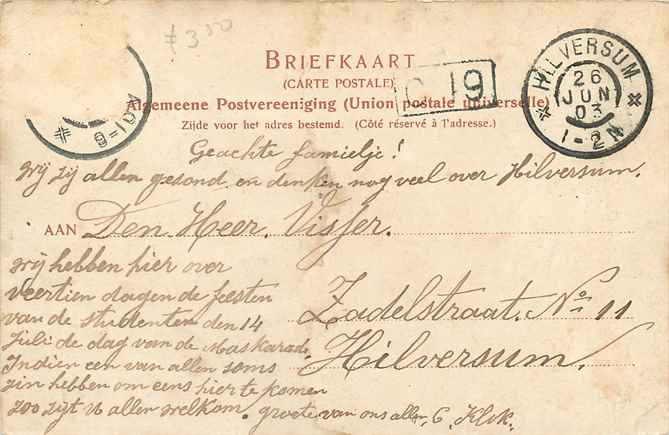 £ 3 50
BRIEFKAART
(CARTE POSTALE)
Algemeene Postvereeniging (Union postale universelle)
Zijde voor het adres bestemd. (Côté réservé à l'adresse.)
G 19
HILVERSUM
26
JUN
03
1-2N
Geachte familje!
wij zij allen gesond en denken nog veel over Hilversum.
AAN Den Heer. Visser.
wij hebben hier over
veertien dagen de feesten
van de studenten den 14
Juli de dag van de Maskarade
Indien een van allen soms
zin hebben om eens hier te komen
zoo zijt u allen welkom. groete van ons allen, G. Klok.
Zadelstraat. No 11
Hilversum.